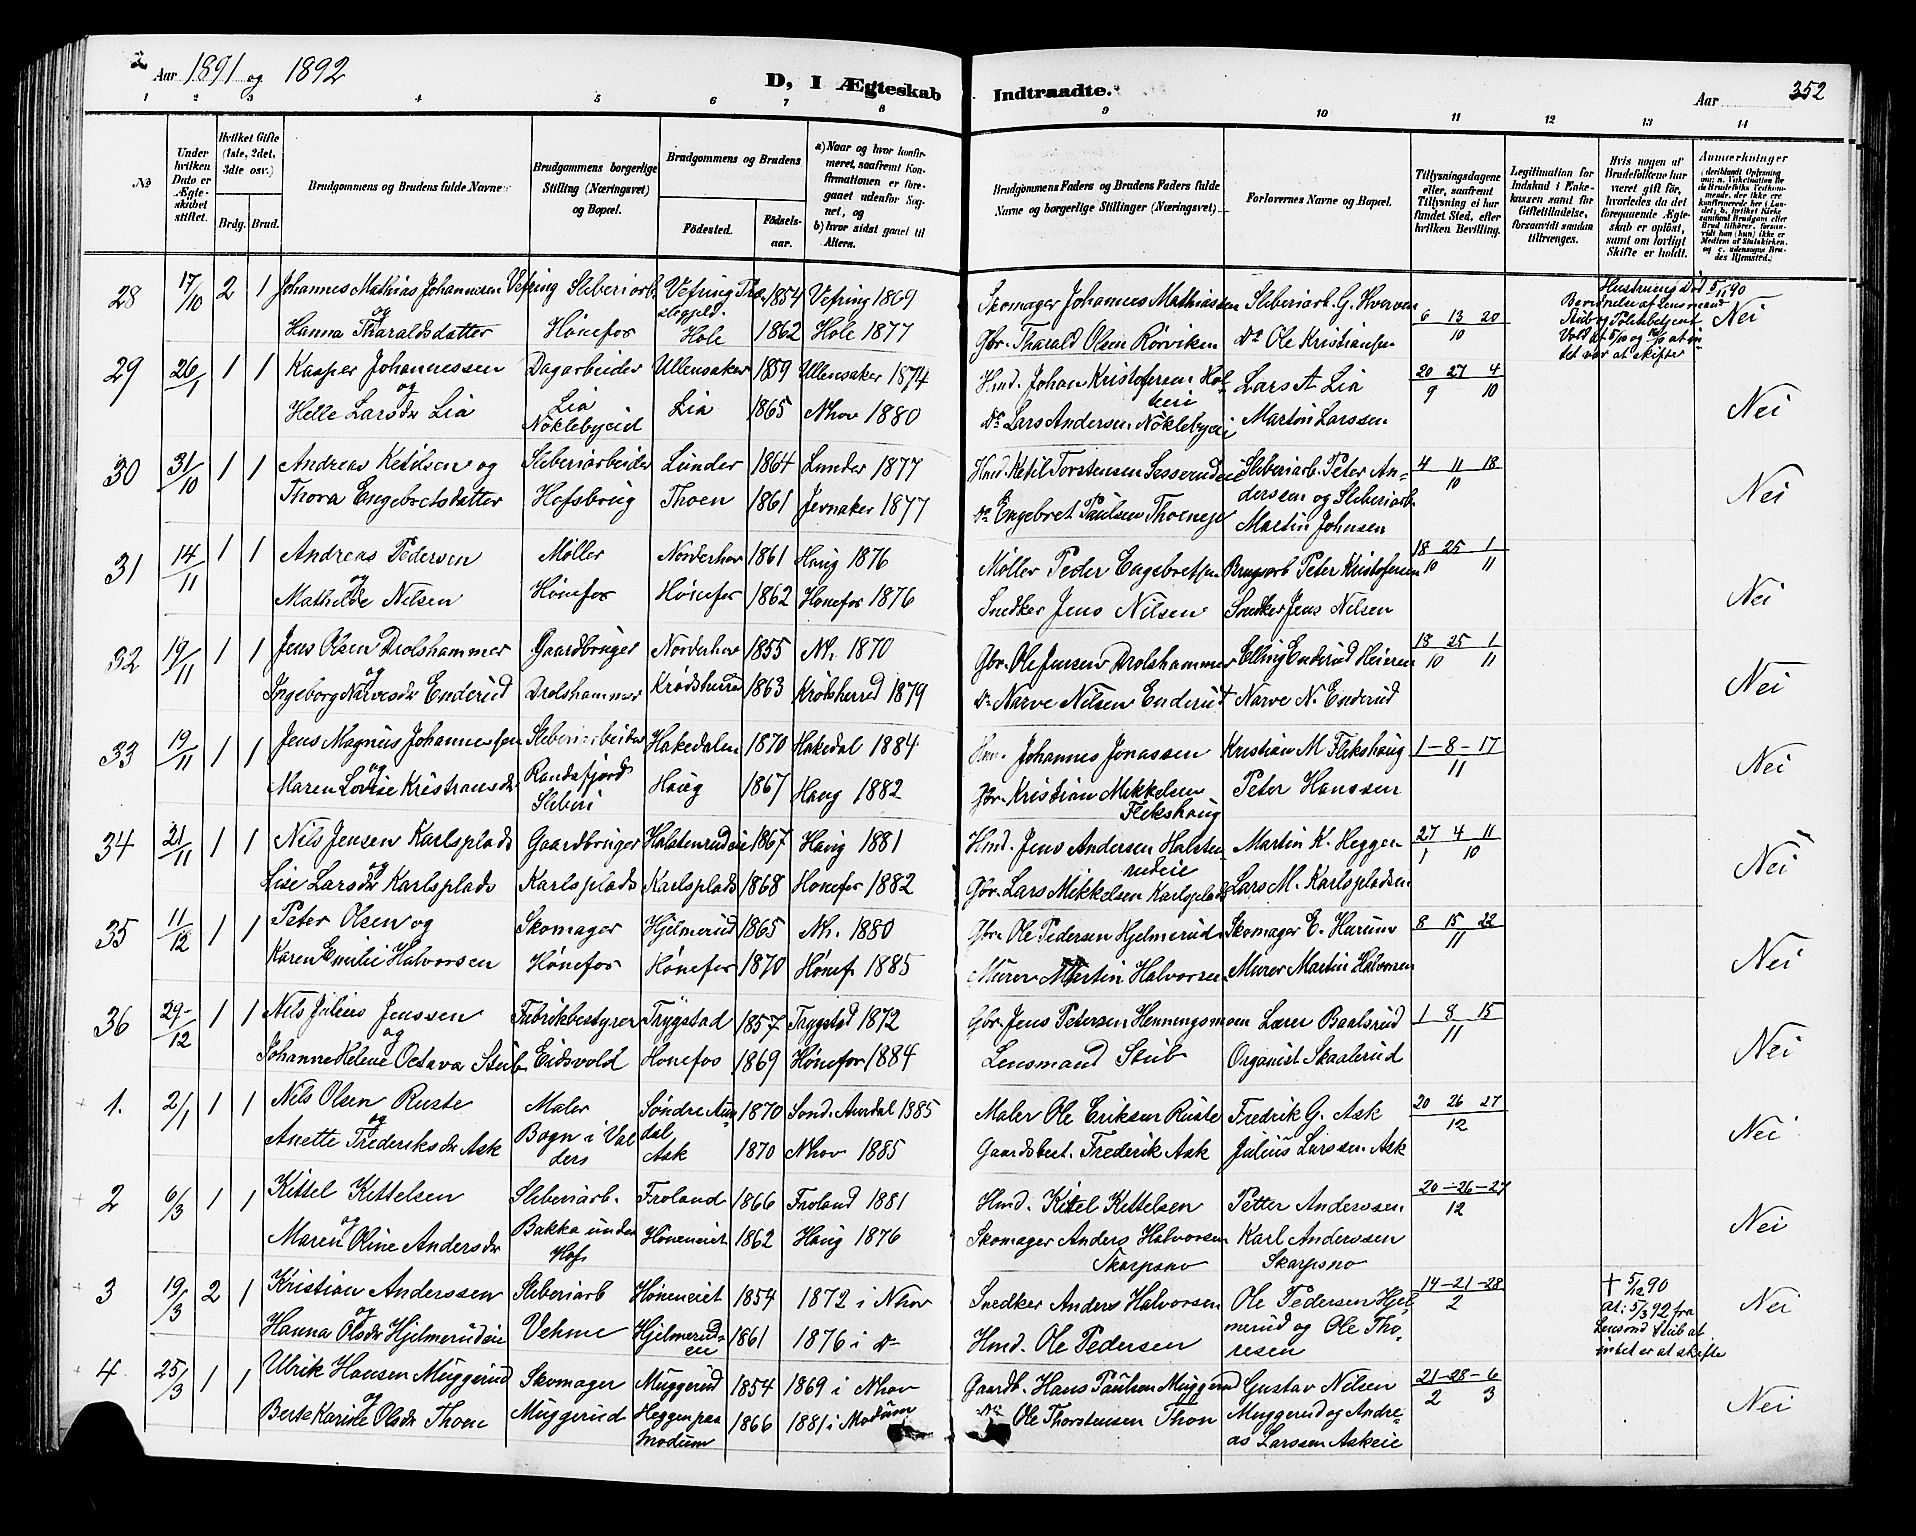 Aar 1891 og 1892
D, I Ægteskab Indtraadte.
Aar 352
1 2 3 4 5 6 7 8 9 10 11 12 13 14
No
Under hvilken Dato er Ægteskabet stiftet.
Hvilket Gifte (1ste, 2det, 3die osv.)
Brdg. Brud.
Brudgommens og Brudens fulde Navne
Brudgommens borgerlige Stilling (Næringsvei) og Bopæl.
Brudgommens og Brudens
Fødested. Fødselsaar.
a) Naar og hvor konfirmeret, saafremt Konfirmationen er foregaaet udenfor Sognet, og
b) hvor sidst gaaet til Alters.
Brudgommens Faders og Brudens Faders fulde Navne og borgerlige Stillinger (Næringsvei)
Forlovernes Navne og Bopæl.
Tillysningsdagene eller, saafremt Tillysning ei har fundet Sted, efter hvilken Bevilling.
Legitimation for Indskud i Enkekassen samt for Giftetilladelse, forsaavidt saadan tiltrænges.
Hvis nogen af Brudefolkene har været gift før, hvorledes da det foregaaende Ægteskab er opløst, samt om lovligt Skifte er holdt.
Anmærkninger
28 17/10 2 1 Johannes Mathias Johannesen Vefsing Sliberiarb. Vefsing 1854 Vefsing 1869 Skomager Johannes Mathiassen Sliberiarb. G. Hverven 6 13 20 Nei
og
Hanna Tharaldsdatter Hønefos Hole 1862 Hole 1877 Gbr. Tharald Olsen Rørviken Do Ole Kristiansen 10
Vold af 5/10 og at intet var at skifte
29 26/1 1 1 Kasper Johannessen Dagarbeider Ullensaker 1859 Ullensaker 1874 Hmd. Johan Kristofersen Lars A. Lia 20 27 4 Nei
og
Helle Larsdr Lia Lia Nøklebyeid Lia 1865 Nhov 1880 Do Lars Andersen Nøklebyei Martin Larssen 9 10
30 31/10 1 1 Andreas Ketilsen og Sliberiarbeider Lunder 1864 Lunder 1877 Hmd. Ketil Torstensen Sesserudeie Sliberiarb. Peter An- 4 11 18 Nei
Thora Engebretsdatter Hofsbrug Thoen 1861 Jevnaker 1877 Do Engebret Paulsen Thoeneje derssen og Sliberiarb 10
Martin Johnsen
31 14/11 1 1 Andreas Pedersen Møller Norderhov 1861 Haug 1876 Møller Peder Engebretsen Brugsarb Peter Kristofersen 18 25 1 Nei
og
Mathilde Nilsen Hønefos Hønefos 1862 Hønefos 1876 Snedker Jens Nilsen Snedker Jens Nilsen 10 11
32 19/11 1 1 Jens Olsen Drolshammer Gaardbruger Norderhov 1855 Nh. 1870 Gbr. Ole Jensen Drolshammer Elling Enderud Heieren 18 25 1 Nei
og
Ingeborg Narvesdr Enderud Drolshammer Krødsherred 1863 Krødsherred 1879 Do Narve Nilsen Enderud Narve N. Enderud 10 11
33 19/11 1 1 Jens Magnus Johannessen Sliberiarbeider Hakedalen 1870 Hakedal 1884 Hmd. Johannes Jonassen Kristian M Flekshaug 1 - 8 - 17 Nei
og
Maren Lovise Kristiansdr Randsfjord Sliberi Haug 1867 Haug 1882 Gbr. Kristian Mikkelsen Peter Hanssen 11
Flekshaug
34 21/11 1 1 Nils Jensen Karlsplads Gaardbruger Halstenrudeie 1867 Haug 1881 Hmd. Jens Andersen Halsten- Martin K. Heggen 27 4 11 Nei
og rudeie
Lise Larsdr Karlsplads Karlsplads Karlsplads 1868 Hønefos 1882 Gbr. Lars Mikkelsen Karlsplads Lars M. Karlspladsen 1 10
35 11/12 1 1 Peter Olsen og Skomager Hjelmerud 1865 Nh. 1880 Gbr. Ole Pedersen Hjelmerud Skomager E. Hurum 8 15 22 Nei
Karen Emilie Halvorsen Hønefos Hønefos 1870 Hønef. 1885 Murer Martin Halvorsen Murer Martin Halvorsen 11
36 29/12 1 1 Nils Julius Jenssen Fabrikbestyrer Trygstad 1857 Trygstad 1872 Gbr. Jens Petersen Hennengsmoen Lærer Baalsrud 1 8 15 Nei
og
Johanne Helene Octava Stub Eidsvold Hønefos 1869 Hønefos 1884 Lensmand Stub Organist Skaalerud 11
1. 2/1 1 1 Nils Olsen Ruste Maler Søndre Aur- 1870 Sønd. Aurdal 1885 Maler Ole Eriksen Ruste Fredrik G. Ask 20 26 27 Nei
og dal
Anette Frederiksdr Ask Bagn i Val- ders Ask 1870 Nhov 1885 Gaardsbest. Frederik Ask Julius Larssen Ask 12
2 6/3 1 1 Kittel Kittelsen Sliberiarb. Froland 1866 Froland 1881 Hmd. Kittel Kittelsen Petter Anderssen 20-26-27 Nei
og
Maren Oline Andersdr Bakka under Hofs Høneneiet 1862 Haug 1876 Skomager Anders Halvorsen Karl Anderssen 12
Skarpsno Skarpsno
3 19/3 2 1 Kristian Anderssen Sliberiarb Høneneiet 1854 1872 i Nhov Snedker Anders Halvorsen Ole Pedersen Hjel- 14-21-28 † 5/12 90 Nei
og merud og Ole Tho- 2 at. 5/3 92 fra
Hanna Olsdr Hjelmerudeie Vehme Hjelmerud- eie 1861 1876 i do Hmd. Ole Pedersen resen Lensmd Stub at
intet er at skifte
4 25/3 1 1 Ulrik Hansen Muggerud Skomager Muggerud 1854 1869 i Nhov Gaardb. Hans Paulsen Muggerud Gustav Nilsen 21-28-6 Nei
og
Berte Karine Olsdr Thoen Muggerud Heggen paa Modum 1866 1881 i Modum Do Ole Thorstensen Thon Muggerud og Andre- 2 3
as Larssen Askeie